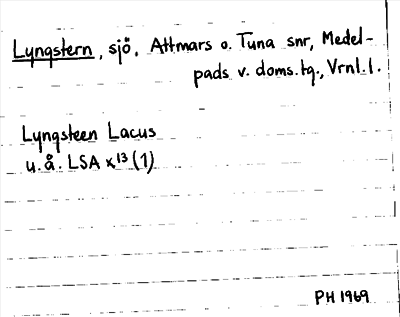 Lyngstern, sjö, Attmars o. Tuna snr, Medel-
pads v. doms.tg., Vrnl.l.
Lyngsteen Lacus
u.å. LSA x¹³ (1)
PH 1969